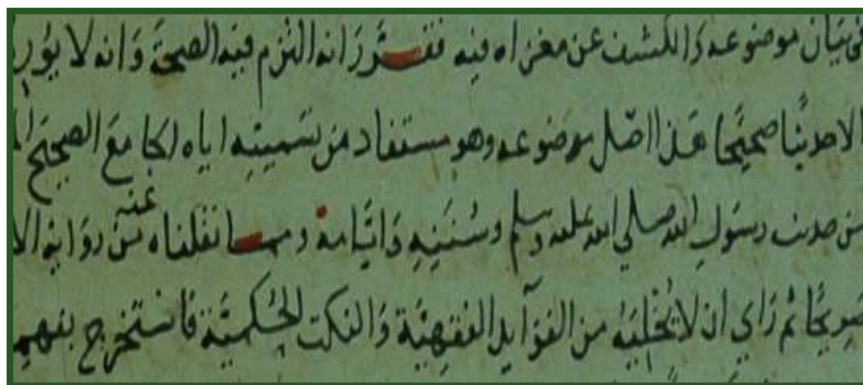 في بيان موضوعه والكشف عن مغزاه فيه فقرر انه التزم فيه الصحة وانه لا يورد
الا حديثا صحيحا هذا اصل موضوعه وهو مستفاد من تسميته اياه الجامع الصحيح
من حديث رسول الله صلي الله عليه وسلم وسننه وايامه ومما نقلناه عنه من رواية الا
صريحا ثم راي ان لا يخليه من الفوايد الفقهية والنكت الحكمية فاستخرج بفهمه